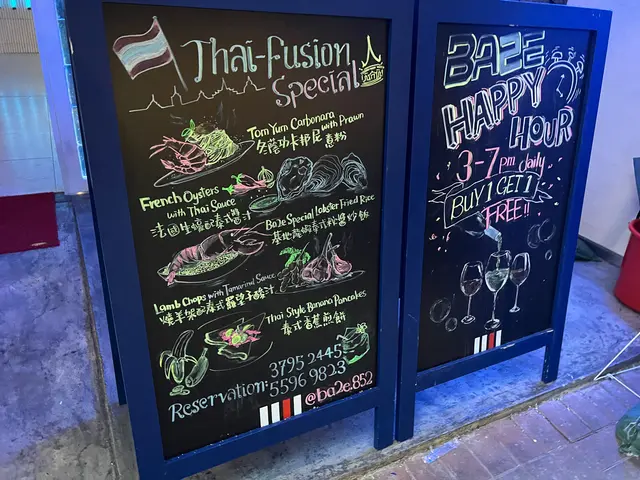 Thai-Fusion
Special
Tom Yum Carbonara
with Prawn
冬蔭功卡邦尼意粉
French Oysters
with Thai Sauce
法國生蠔配泰式醬汁
Ba2e Special Lobster Fried Rice
基地龍蝦泰式炒飯
Lamb Chops with Tamarind Sauce
燒羊架配泰式羅望子酸汁
Thai Style Banana Pancakes
泰式香蕉煎餅
Reservation: 3795 2445
5596 9823
@ba2e.852
BA2E
HAPPY
HOUR
3-7 pm daily
BUY 1 GET 1
FREE!!